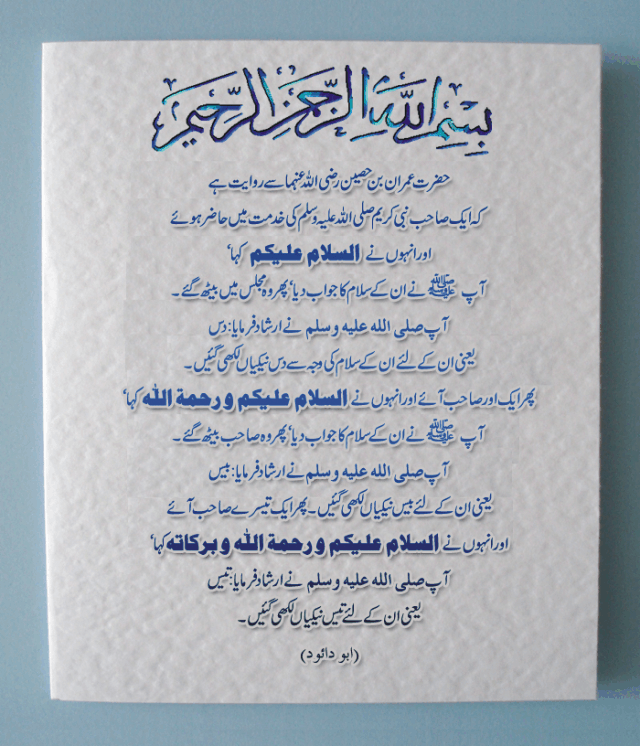 بِسْمِ اللَّهِ الرَّحْمَنِ الرَّحِيمِ
حضرت عمران بن حصین رضی اللہ عنہما سے روایت ہے
کہ ایک صاحب نبی کریم صلی اللہ علیہ وسلم کی خدمت میں حاضر ہوئے
اور انہوں نے السلام علیکم کہا‘
آپ ﷺ نے ان کے سلام کا جواب دیا‘ پھر وہ مجلس میں بیٹھ گئے۔
آپ صلی اللہ علیہ وسلم نے ارشاد فرمایا: دس
یعنی ان کے لئے ان کے سلام کی وجہ سے دس نیکیاں لکھی گئیں۔
پھر ایک اور صاحب آئے اور انہوں نے السلام علیکم ورحمة اللہ کہا‘
آپ ﷺ نے ان کے سلام کا جواب دیا‘ پھر وہ صاحب بیٹھ گئے۔
آپ صلی اللہ علیہ وسلم نے ارشاد فرمایا: بیس
یعنی ان کے لئے بیس نیکیاں لکھی گئیں۔ پھر ایک تیسرے صاحب آئے
اور انہوں نے السلام علیکم ورحمة اللہ وبرکاتہ کہا‘
آپ صلی اللہ علیہ وسلم نے ارشاد فرمایا: تیس
یعنی ان کے لئے تیس نیکیاں لکھی گئیں۔
(ابو دائود)